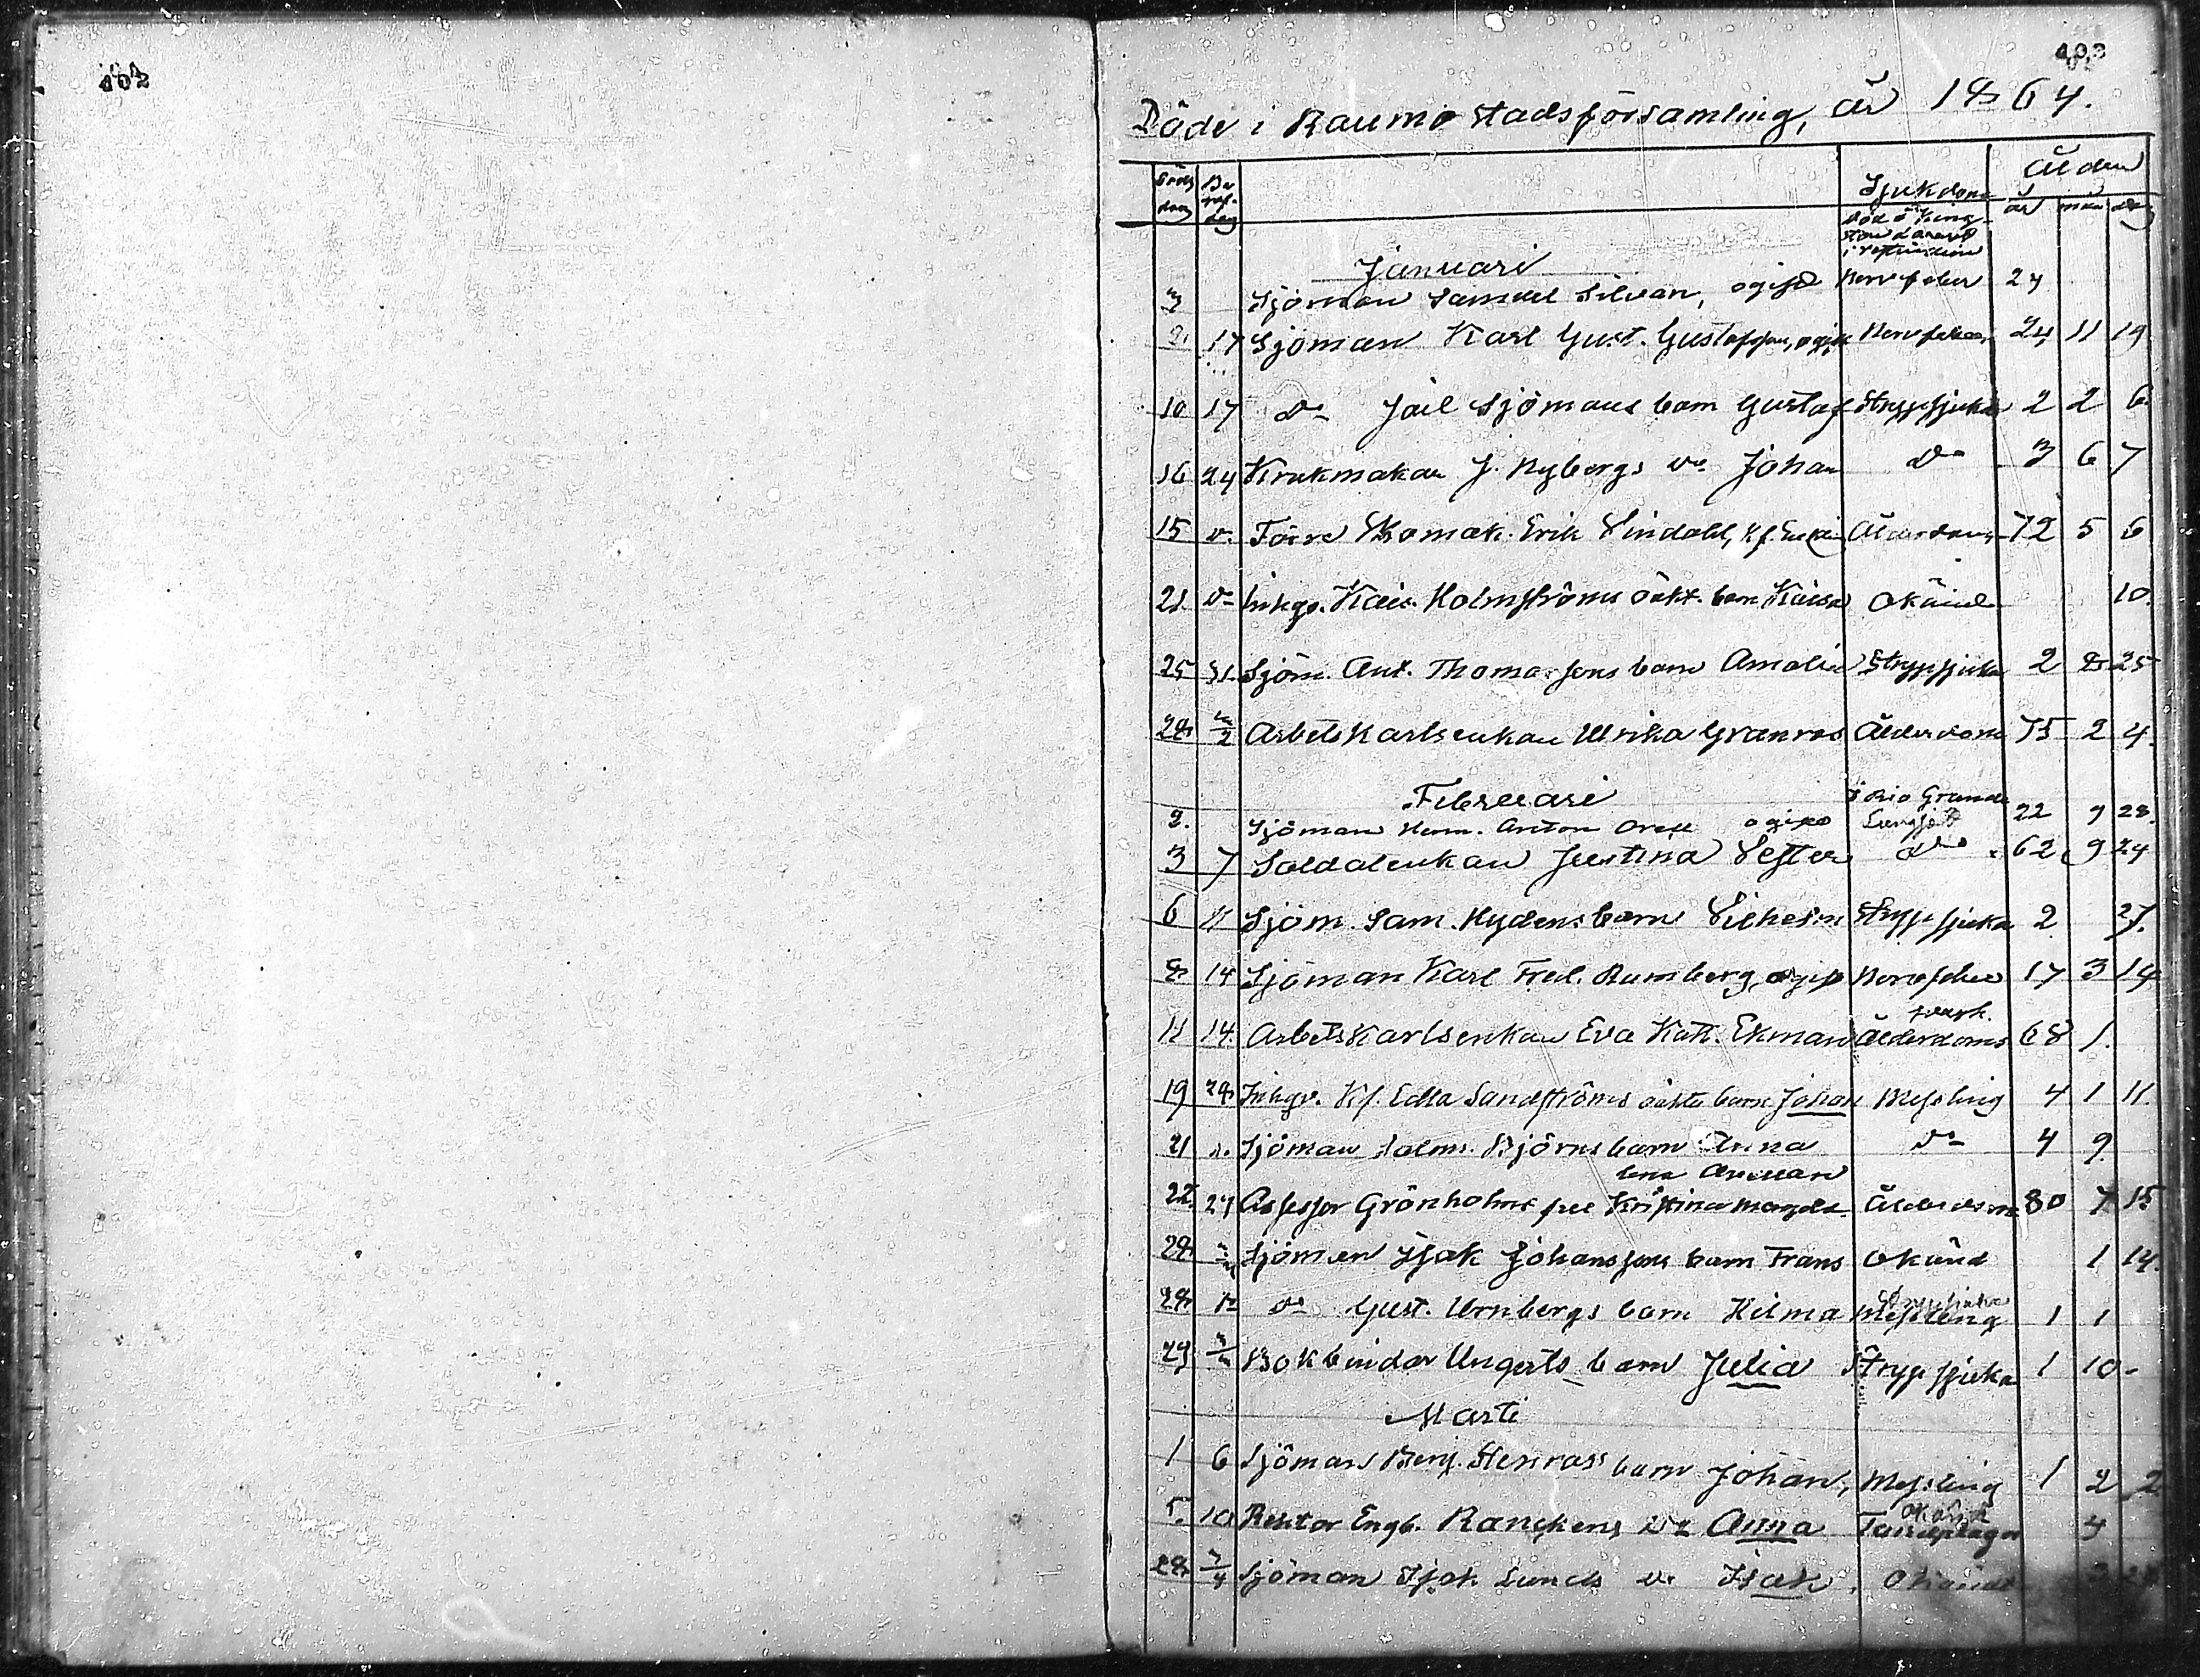 402
403
Döde i Raumo stadsförsamling, år 1864.
Döds dag Be graf. dag Sjukdom Ålder
år mån dag
död å King-
ston
Januari
3 Sjöman Samuel Silvan, ogift Nervfeber 24
2. 17 Sjöman Karl Gust. Gustafsson, ogift Nervfeber 24 11 19
10 17 do Jail Sjömans barn Gustaf Strypsjuka 2 2 6
16 24 Krukmakar J. Nybergs do Johan do 3 6 7
15 do Förre Skomak. Erik Lindahl, Ålderdom 72 5 6
21. do Inhys. Holmströms oäkt. barn Kaisa Okänd 10.
25 31. Sjöm. Ant. Thomassons barn Amalia Strypsjuka 2 8 25
28 2 Arbetskarlsenkan Ulrika Granroos Ålderdom 75 2 4.
Februari
i Rio Grande
2. Sjöman Herm. Anton ogift Lungsot 22 9 28.
3 7 Soldatenkan Justina Vester do 62 9 24
6 11 Sjöm. Sam. Nydens barn Vilhelm Strypsjuka 2 27.
8 14 Sjöman Karl Fred. Rumberg, ogift Nervfeber 17 3 14
11 14. Arbetskarlsenkan Eva Katt. Ekman Ålderdoms 68 1.
19 28 Inhys. Edla Sandströms oäkta barn Johan Messling 4 1 11.
21 do Sjöman Salom. Björns barn Anna do 4 9
22. 27 Assessor Grönholms fru Kristina Magda- Ålderdom 80 7 15
lena
28 Sjöman Isak Johanssons barn Frans Okänd 1 14.
28 do do Gust. Urnbergs barn Hilma Messling 1 1
29 Bokbindar Ungerts barn Julia Strypsjuka 1 10 -
Marti
1 6 Sjöman Benj. Stenroos barn Johan, Messling 1 2 2
5. 10 Rektor Engb. Ranckens do Anna Okänd 4
28 3/4 Sjöman Isak Lunds do Isak, Okänd